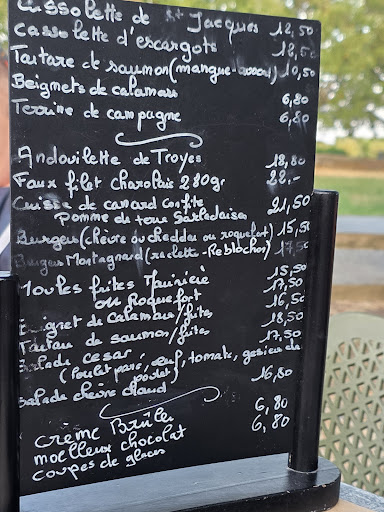 Cassolette de St Jacques 12,50
Cassolette d'escargots 12,50
Tartare de saumon (mangue-avocat) 10,50
Beignets de calamars
Terrine de campagne 6,80
6,80
Andouillette de Troyes 18,80
Faux filet charolais 280gr 22,-
Cuisse de canard confite 21,50
Pomme de terre Sarladaise
Burger (chèvre ou cheddar ou roquefort) 15,50
Burger Montagnard (raclette-Reblochon) 17,50
Moules frites Marinière 15,50
ou Roquefort 17,50
Beignet de Calamars/frites 16,50
Tartare de saumon/frites 18,50
Salade Cesar 17,50
(Poulet pané, œuf, tomate, gesiers de poulet)
Salade chèvre chaud 16,80
Crème Brûlée 6,80
moelleux chocolat 6,80
coupes de glaces